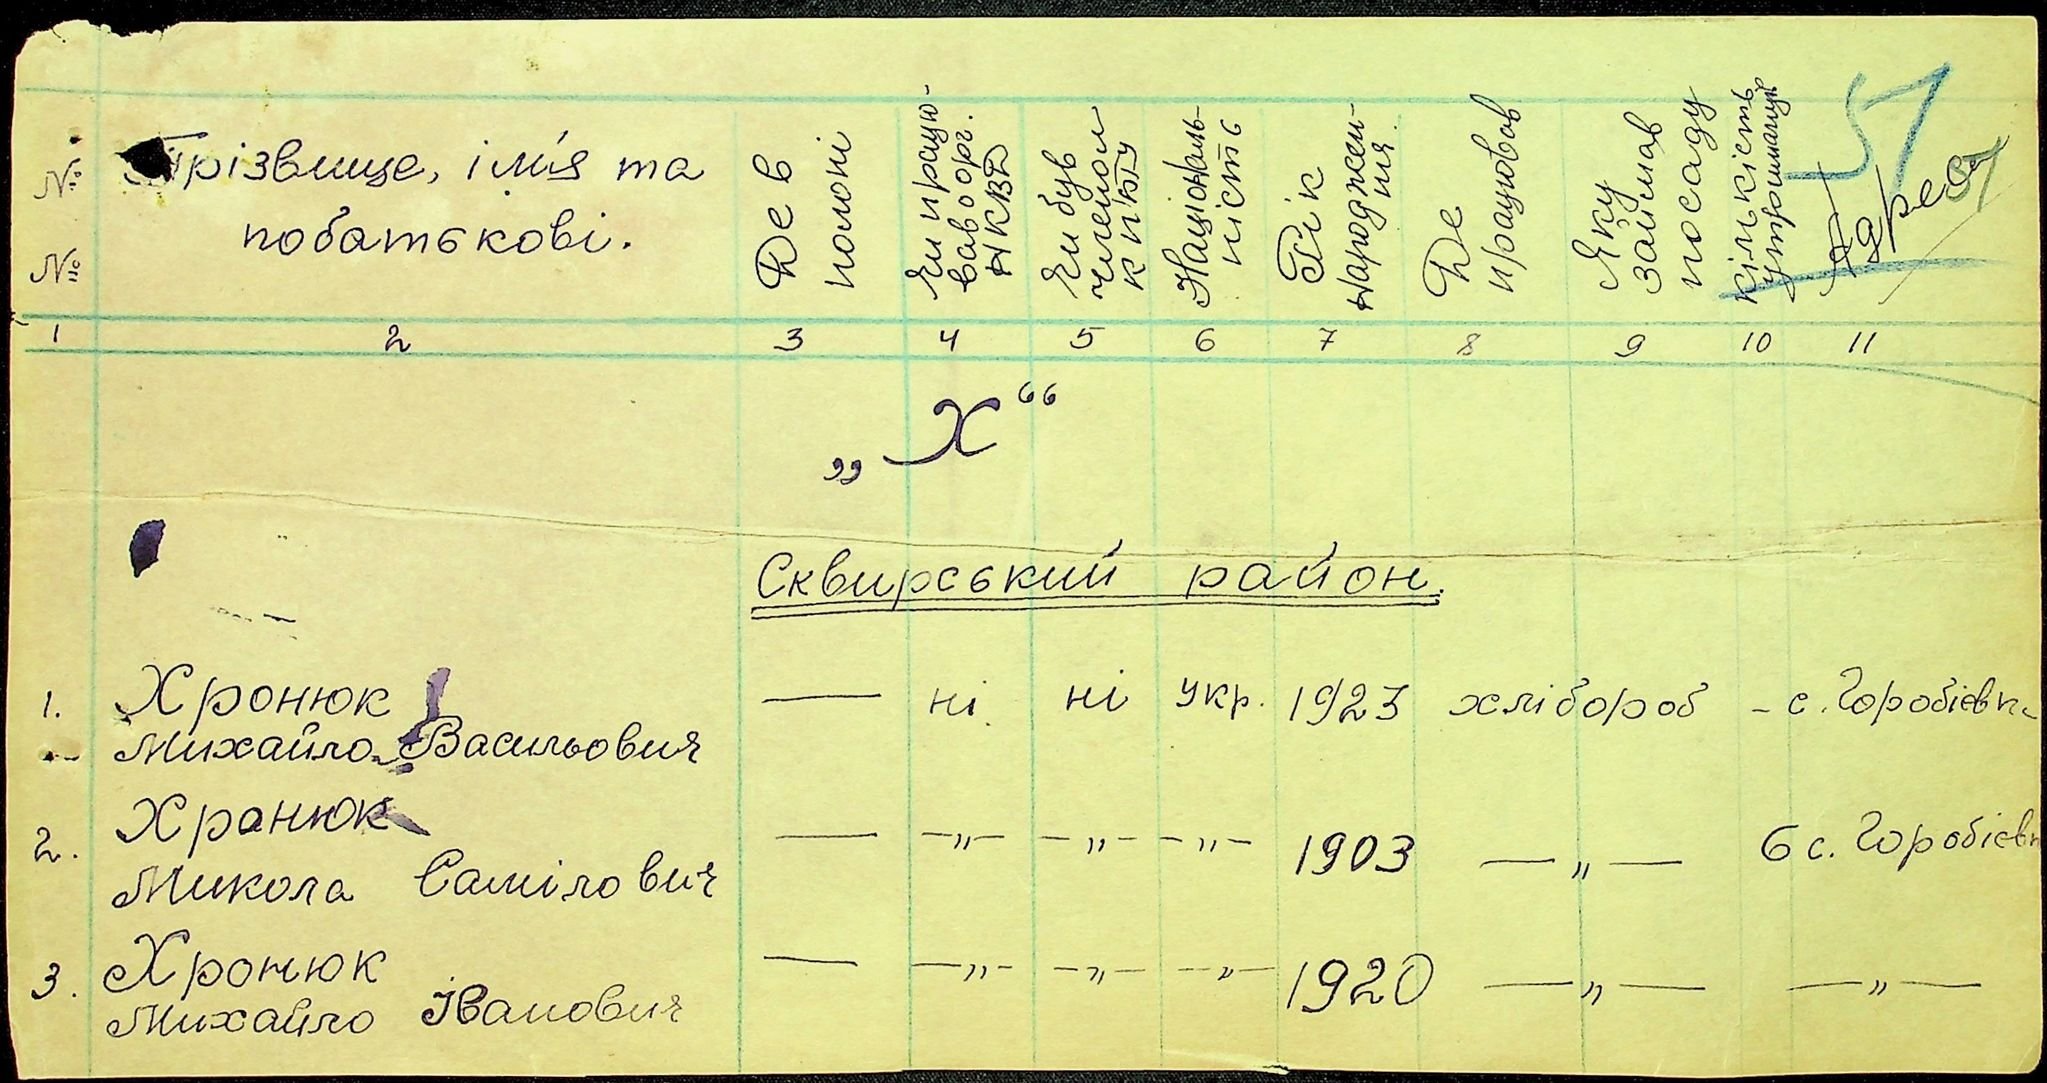 № Прізвище, ім'я та
№ побатькові.
Де в полоні
Чи працював в орг. НКВД
Чи був членом КПбУ
Національність
Рік народження
Де працював
Яку займав посаду
кількість утриманців
Адреса
57
57
1 2 3 4 5 6 7 8 9 10 11
„Х“
Сквирський район.
1. Хронюк
Михайло Васильович — ні ні укр. 1923 хлібороб – с. Горобієвк
2. Хранюк
Микола Самілович — –„– –„– –„– 1903 –„– 6 с. Горобієвк
3. Хронюк
Михайло Іванович — –„– –„– –„– 1920 –„– –„–